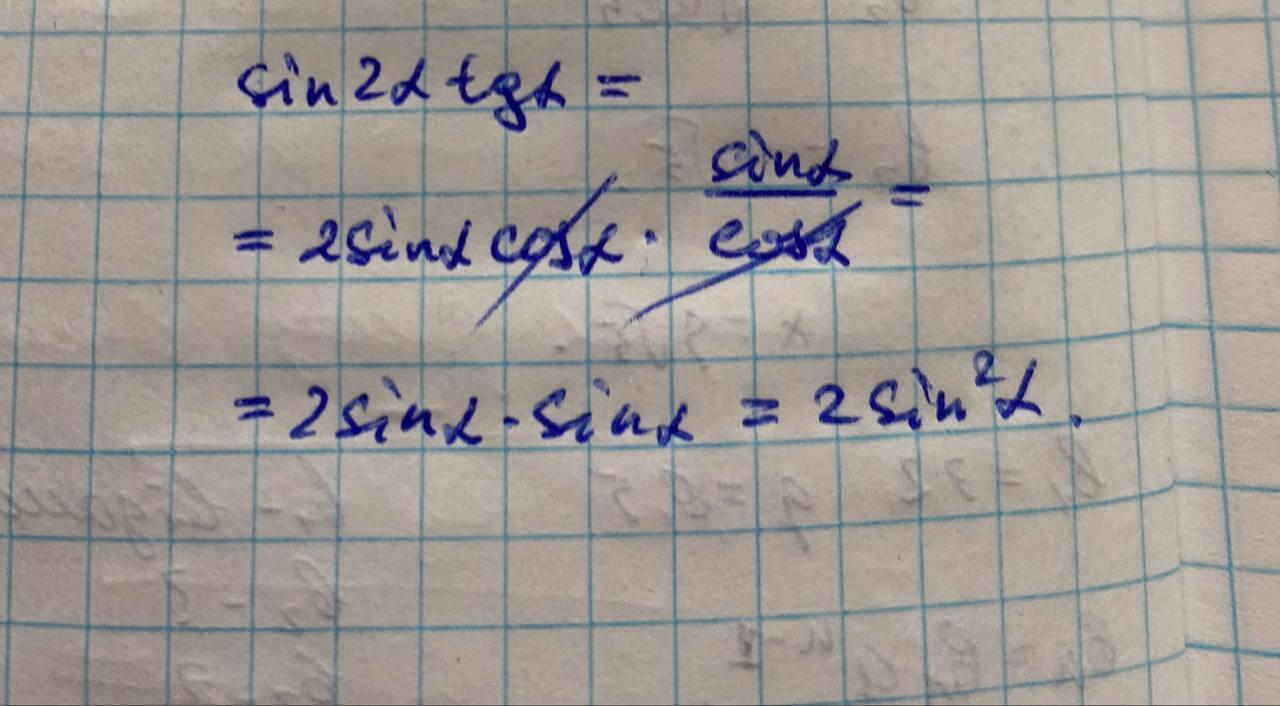 sin2α tgα =
= 2sinα cosα · sinα/cosα =
= 2sinα · sinα = 2sin²α.